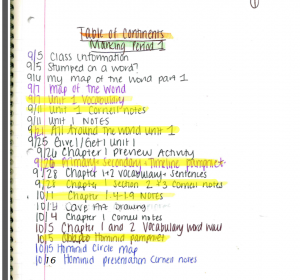 Table of Contents
Marking Period 1
9/5 Class Information
9/5 Stumped on a word?
9/6 my map of the word part 1
9/7 map of the word
9/7 Unit 1 Vocabulary
9/11 Unit 1 Cornell notes
9/11 Unit 1 Notes
9/21 All Around The World Unit 1
9/25 Give 1/Get 1 Unit 1
9/26 Chapter 1 preview Activity
9/26 Primary Secondary Timeline pamphlet
9/28 Chapter 1+2 vocabulary + Sentences
9/28 Chapter 1 Section 2 + 3 Cornell notes
10/1 Chapter 1.4-1.9 Notes
10/4 Cave Art Drawing
10/4 Chapter 1 Cornell notes
10/5 Chapter 1 and 2 Vocabulary word wall
10/5 Hominid pamphlet
10/15 Hominid Circle Map
10/16 Hominid presentation Cornell notes